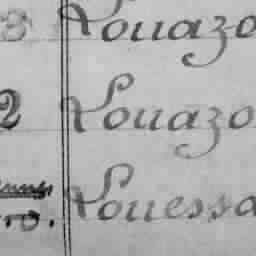 3 Louazo
2 Louazo
Louessa